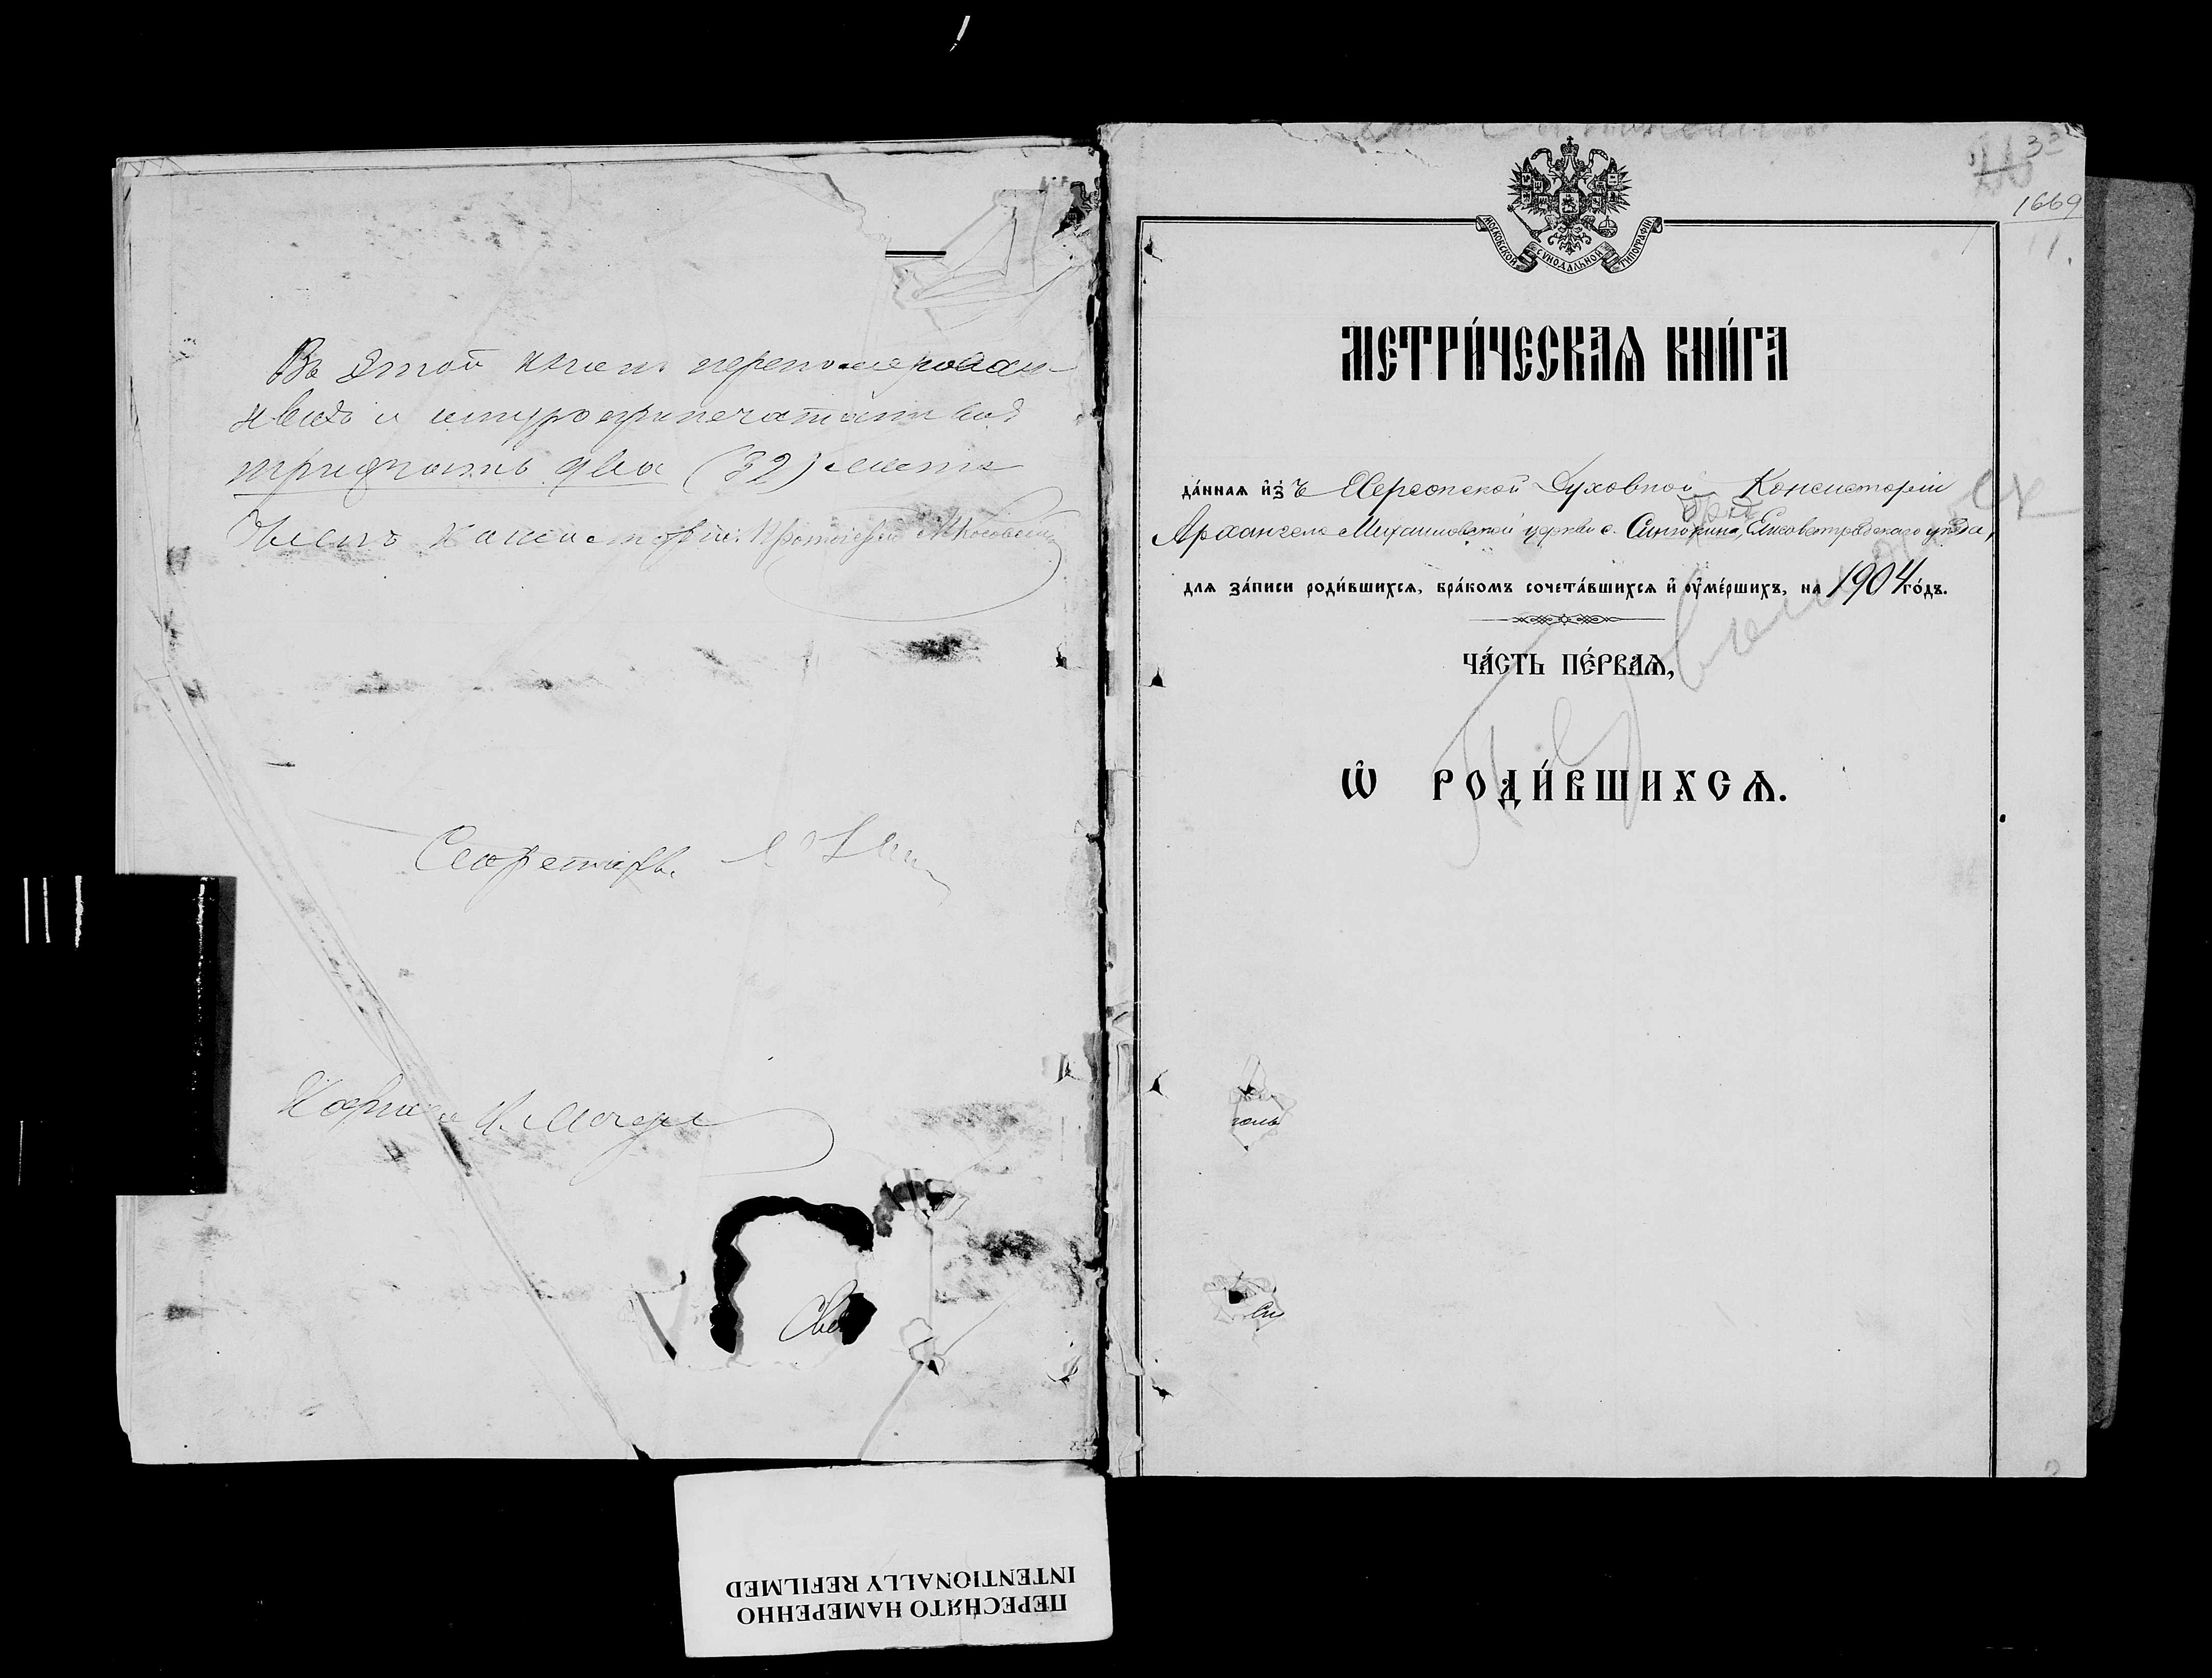 Въ этой книгѣ перенумерован-
ныхъ и шнуроприпечатанныхъ
тридцать два (32) листа
Членъ Консисторіи: Протоіерей
Секретарь
Св
1669
МОСКОВСКОЙ СѴНОДАЛЬНОЙ ТИПОГРАФІИ
МЕТРИ́ЧЕСКАѦ КНИ́ГА
да́нная и҆зъ Херсонской Духовной Консисторіи
Архангело Михаиловской церкви с. Елисаветградскаго уѣзда,
для за́писи роди́вшихся, бра́комъ сочета́вшихся и҆ ᲂу҆ме́ршихъ, на 1904 го́дъ.
ЧА́СТЬ ПЕ́РВАѦ,
Ѽ РОДИ́ВШИХСѦ.
ПЕРЕСНЯТО НАМЕРЕННО
INTENTIONALLY REFILMED